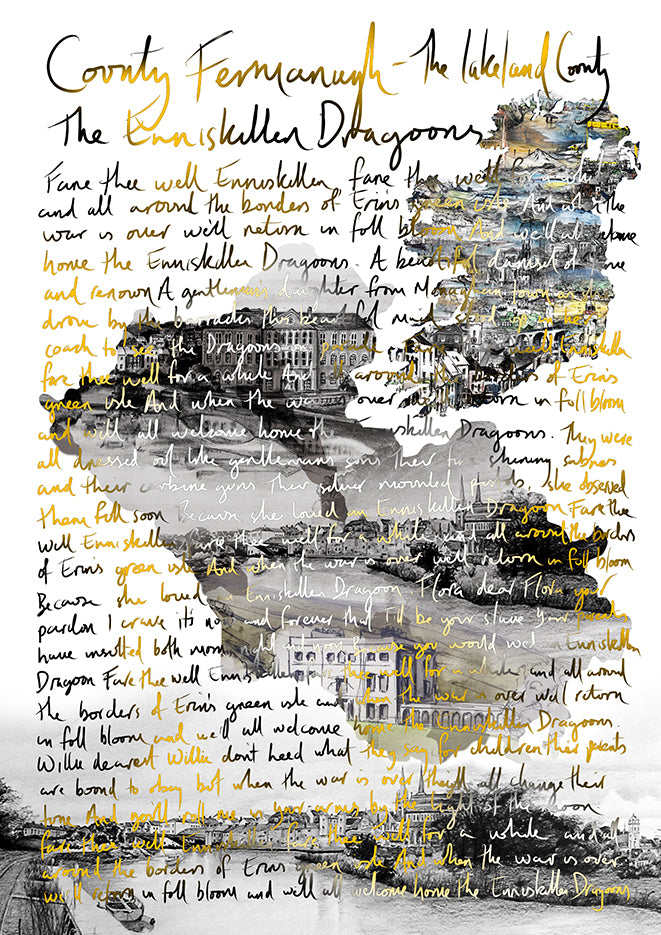 County Fermanagh - The lakeland County
The Enniskillen Dragoons
Fare thee well Enniskillen fare thee well for a while
and all around the borders of Erin's green isle And when the
war is over we'll return in full bloom And we'll all welcome
home the Enniskillen Dragoons. A beautiful damsel of fame
and renown A gentleman's daughter from Monaghan town as she
drove by the barracks this beautiful maid stood up in her
coach to see the Dragoons on parade Fare thee well Enniskillen
fare thee well for a while And all around the borders of Erin's
green isle And when the war is over we'll return in full bloom
and we'll all welcome home the Enniskillen Dragoons. They were
all dressed out like gentlemans sons Their fine shining sabres
and their carbine guns Their silver mounted pistols, she observed
them full soon Because she loved an Enniskillen Dragoon Fare thee
well Enniskillen fare thee well for a while and all around the borders
of Erin's green isle And when the war is over we'll return in full bloom
Because she loved an Enniskillen Dragoon. Flora dear Flora your
pardon I crave it's now and forever that I'll be your slave Your parents
have insulted both morn, night and noon Because you would wed an Enniskillen
Dragoon Fare thee well Enniskillen fare thee well for a while and all around
the borders of Erin's green isle and when the war is over we'll return
in full bloom and we'll all welcome home the Enniskillen Dragoons.
Willie dearest Willie don't heed what they say for children their parents
are bound to obey but when the war is over they'll all change their
tune And you'll roll me in your arms by the light of the moon
fare thee well Enniskillen fare thee well for a while and all
around the borders of Erins green isle And when the war is over
we'll return in full bloom and we'll all welcome home the Enniskillen Dragoons